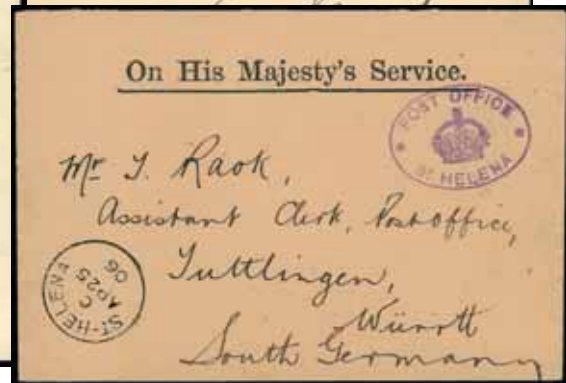 On His Majesty's Service.
POST OFFICE
ST HELENA
Mr J. Raok,
Assistant Clerk, Post Office,
Tuttlingen,
Württ
South Germany
ST-HELENA
C
AP 25
06